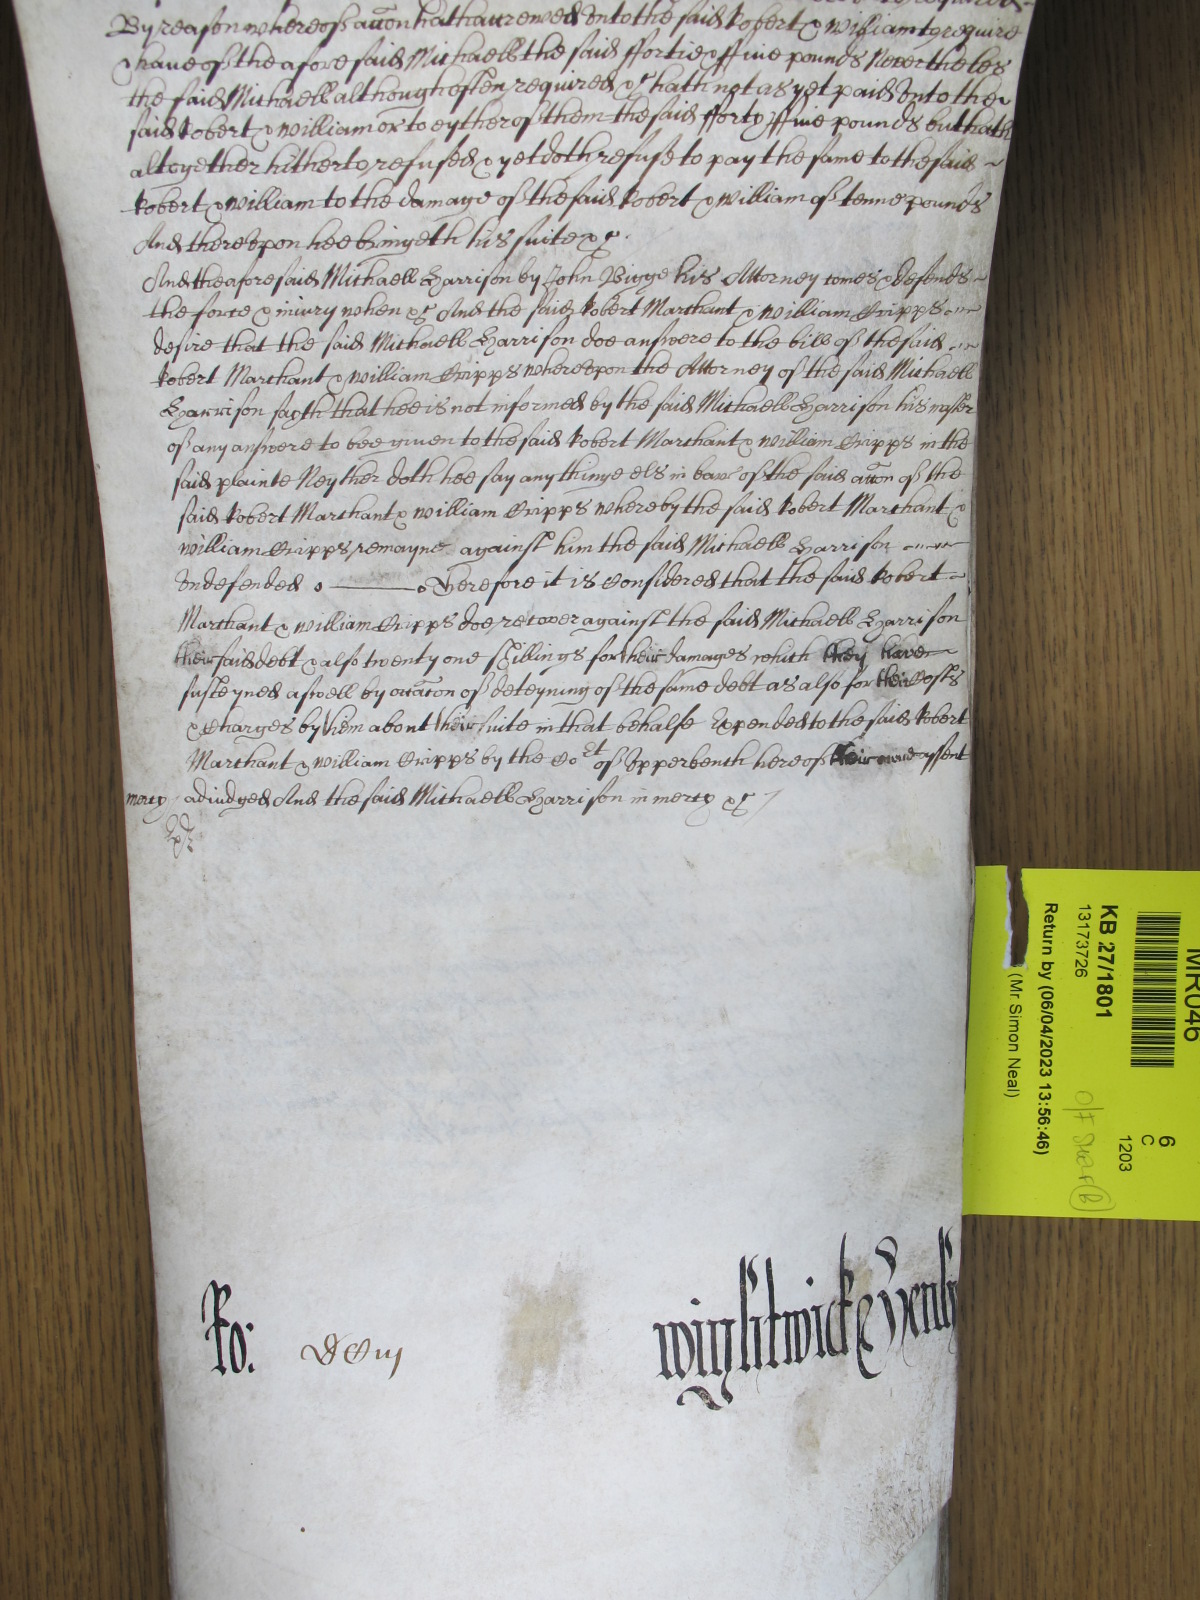 By reason whereof accon hath accrewed unto the said Robert & William to require
& have of the aforesaid Michaell the said ffortie & ffive pounds Neverthelesse
the said Michaell although often required &c hath not as yet paid unto the
said Robert & William or to eyther of them the said fforty & ffive pounds but hath
altogether hitherto refused & yet doth refuse to pay the same to the said
Robert & William to the damage of the said Robert & William of tenne pounds
And thereupon hee bringeth his suite &c.
And the aforesaid Michaell Harrison by John Bigge his Attorney comes & defends
the force & iniury when &c And the said Robert Marchant & William Cripps
desire that the said Michaell Harrison doe answere to the bill of the said
Robert Marchant & William Cripps whereupon the Attorney of the said Michaell
Harrison sayth that hee is not informed by the said Michaell Harrison his master
of any answere to bee given to the said Robert Marchant & William Cripps in the
said plainte Neyther doth hee say any thinge els in barr of the said accon of the
said Robert Marchant & William Cripps whereby the said Robert Marchant &
William Cripps remayne against him the said Michaell Harrison
undefended Therefore it is Considered that the said Robert
Marchant & William Cripps doe recover against the said Michaell Harrison
their said debt & also twenty one shillings for their damages which they have
susteyned aswell by occacon of deteyning of the same debt as also for their Costs
& Charges by them about their suite in that behalfe Expended to the said Robert
Marchant & William Cripps by the Cort of Upperbench here of their assent
mercy adiudged And the said Michaell Harrison in mercy &c
Ro:
Wightwick & Henly
MR046
KB 27/1801
13173726
Return by (06/04/2023 13:56:46)
(Mr Simon Neal)
6
C
1203